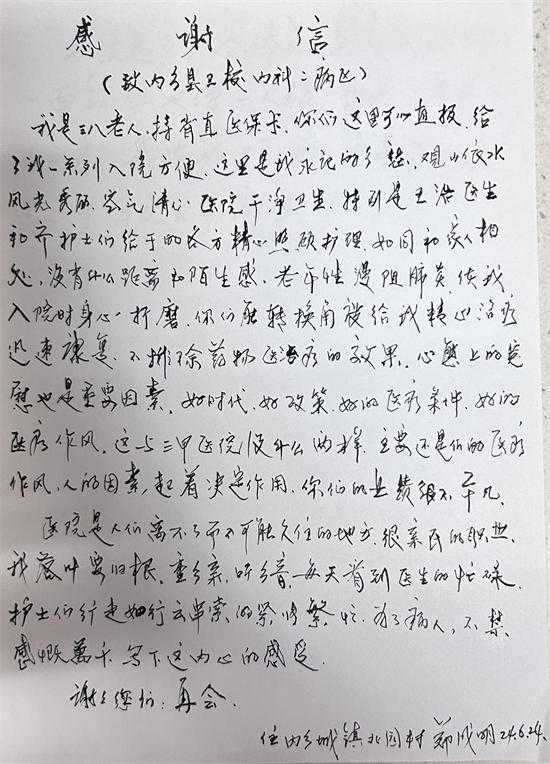 感谢信
(致内乡县卫校内科二病区)
我是三八老人,持省直医保卡,你们这里可以直报,给
了我一系列入院方便,这里是我永记的乡愁,观山依水
风光秀丽,空气清心,医院干净卫生,特别是王浩医生
和齐护士们给于的多方精心照顾护理,如同和家人相
处,没有什么距离和陌生感,老年性慢阻肺炎,使我
入院时身心折磨,你们能转换角度给我精心治疗
迅速康复,不排除药物医治的效果,心态上的安
慰也是重要因素,好时代,好政策,好的医疗条件,好的
医疗作风,这与三甲医院没什么两样,主要还是你们的医疗
作风,人的因素,起着决定作用,你们的业绩很不平凡,
医院是人们离不了而不可能久住的地方,很亲民的职业,
我落叶要归根,重乡亲,听乡音,每天看到医生的忙碌,
护士们行走如行云,的紧张繁忙,为了病人,不禁
感慨万千,写下这内心的感受。
谢谢您们:再会。
住内乡城镇北园村 郑成明24.6.24.